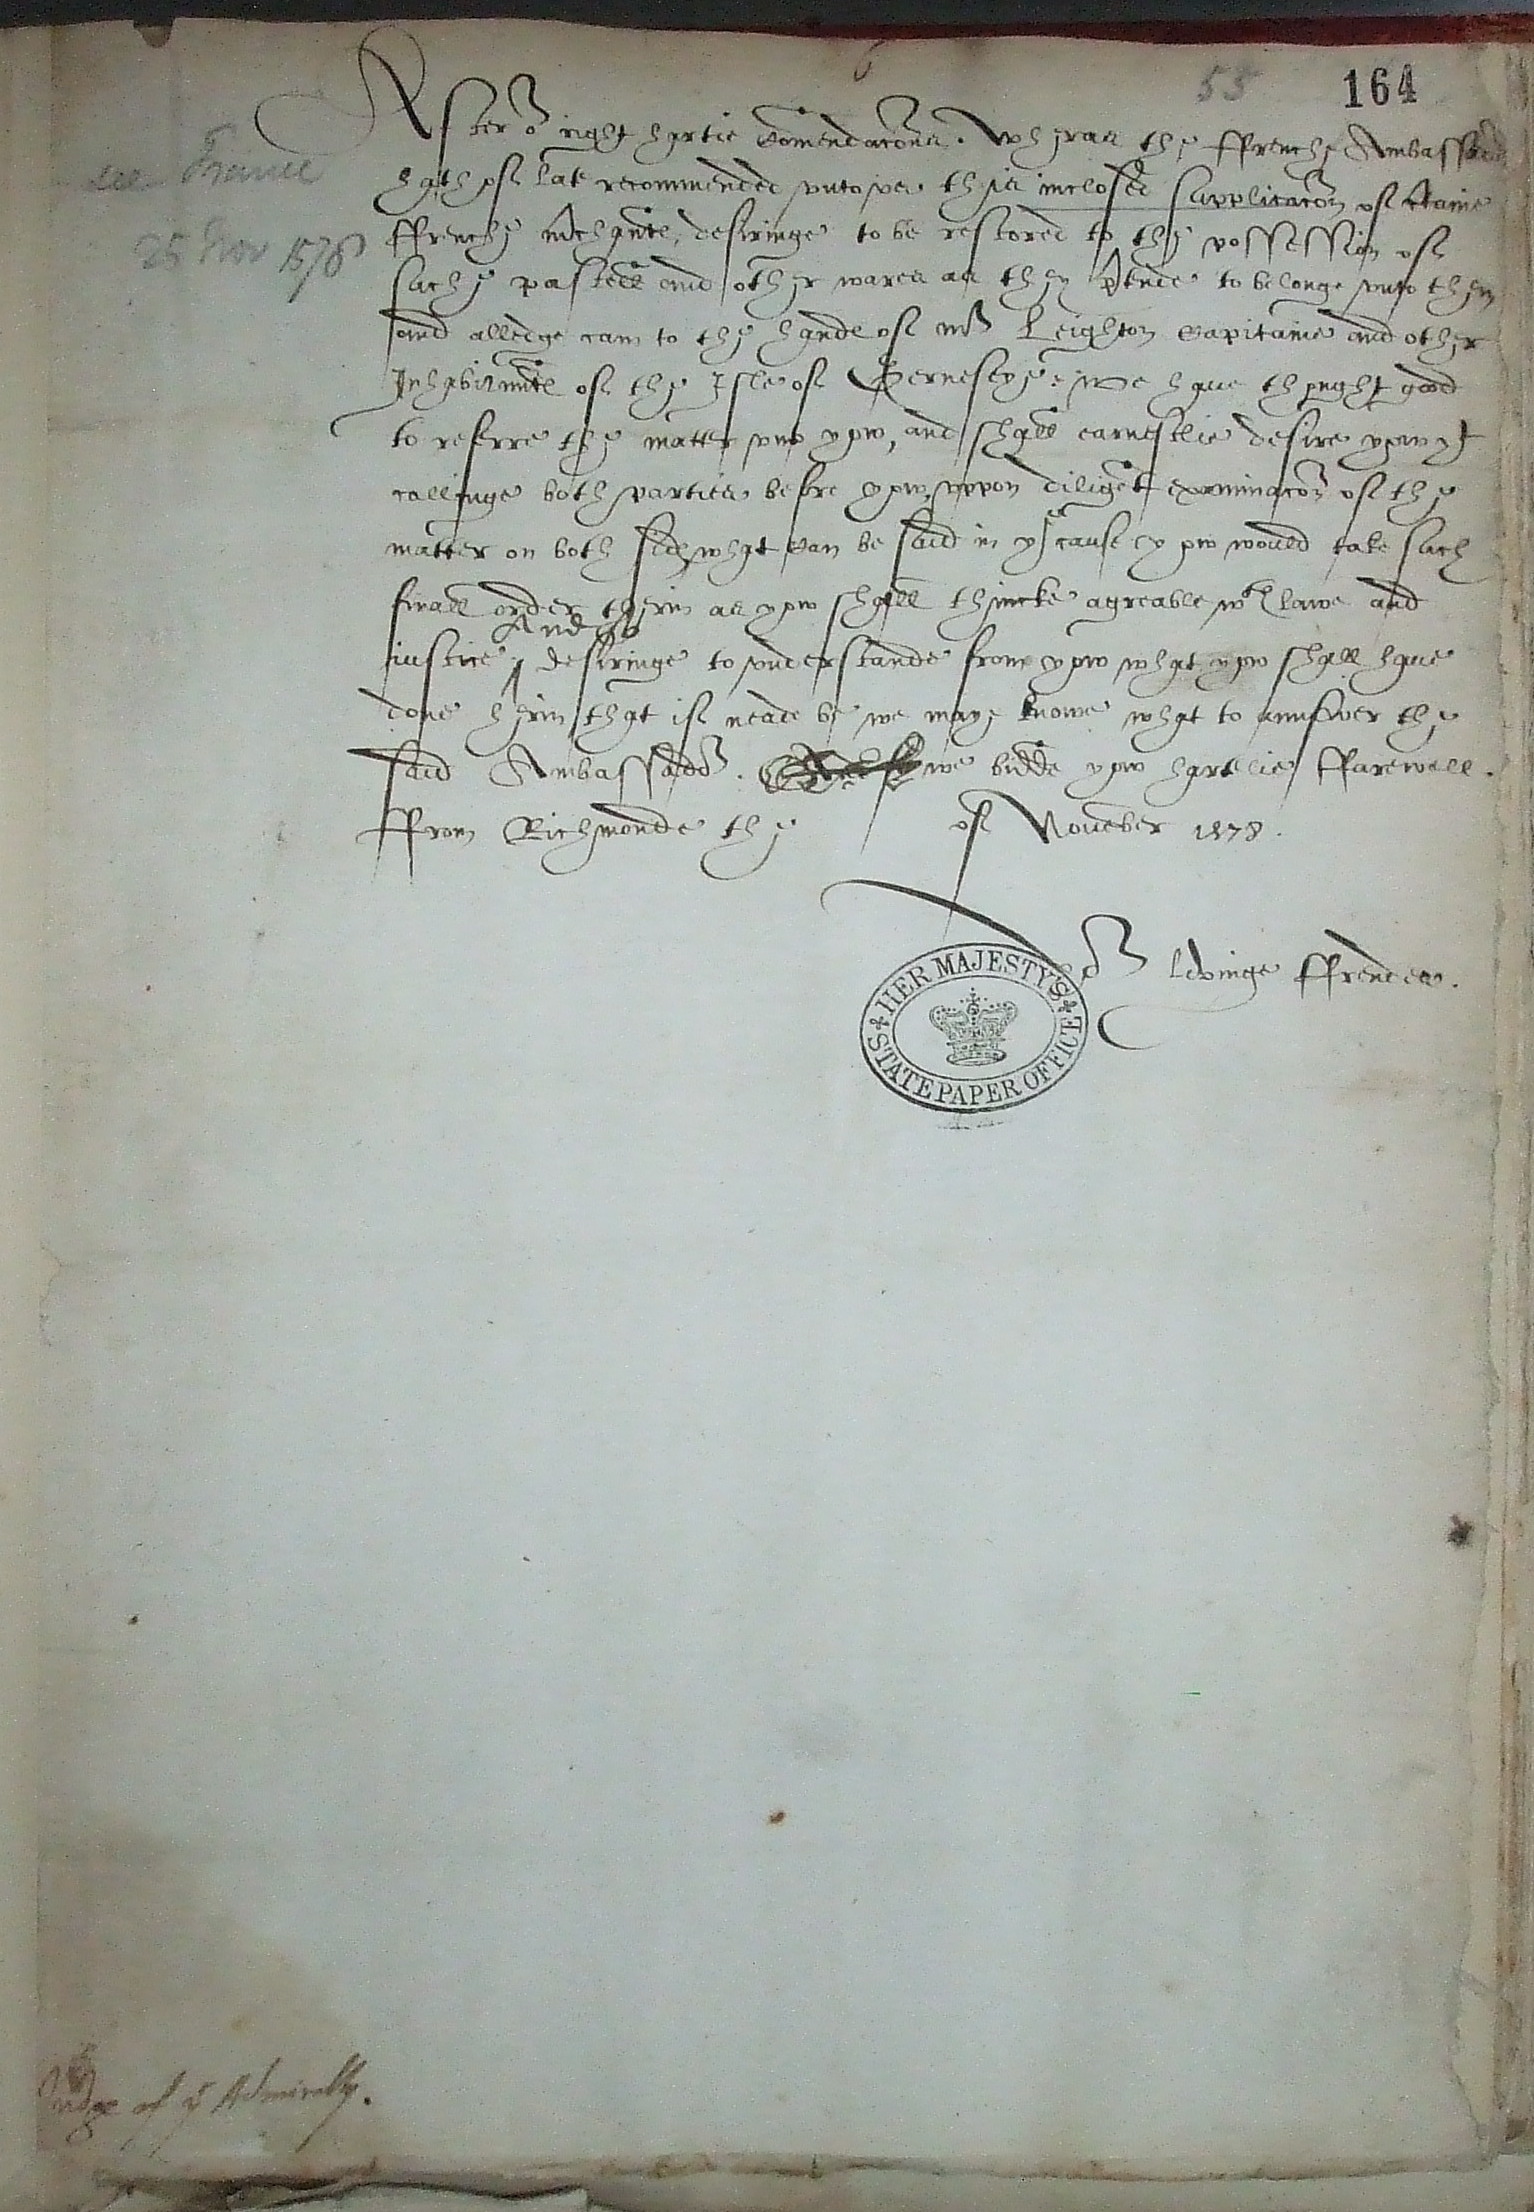 6
55 164
see France
25 Nov 1578
After or right hartie Comendacons. Wheras the ffrenche Ambassador
hath of late recommended unto us this inclosed supplicacon of ctaine
ffrenche mchantes, desiringe to be restored to the possession of
suche pastell and other wares as they ptende to belonge unto them
and alledge cam to the handes of mr Leighton Capitaine and other
Inhabitantes of the Isle of Gernesey: we have thought good
to referre the matter unto yow, and shall earnestlie desire yow yt
callinge both parties before yow, uppon diligent examinacon of the
matter on both sides what can be said in ye cause yow would take such
finall order therin as yow shall thincke agreable wth lawe and
And so
iustice, desiringe to understande from yow what yow shall have
done herin that if neade be we maye knowe what to answer the
said Ambassador. we bidde yow hartelie ffarewell.
ffrom Richmonde the of November 1578.
Yor lovinge ffrendes.
HER MAJESTY'S
STATE PAPER OFFICE
Judge of ye Admiralty.